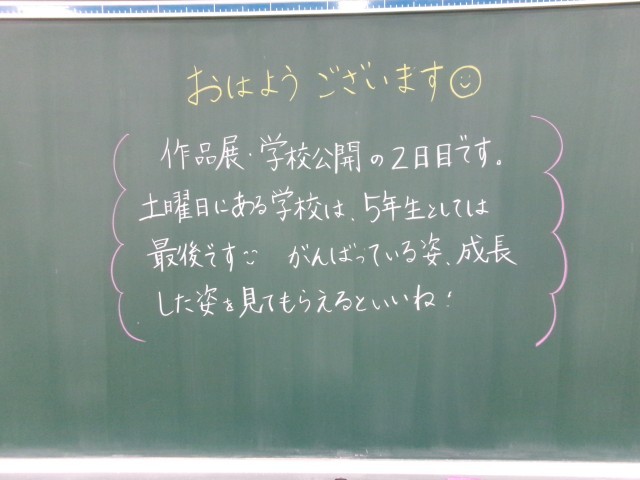 おはようございます
作品展・学校公開の2日目です。
土曜日にある学校は、5年生としては
最後です がんばっている姿、成長
した姿を見てもらえるといいね!